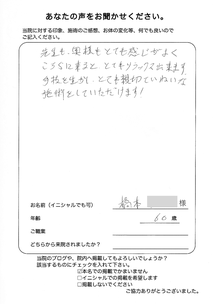 あなたの声をお聞かせください。
当院に対する印象、施術のご感想、お体の変化等、何でも良いので
ご記入ください。
先生も、奥様もとても感じがよく
こちらに来ると とてもリラックス出来ます。
とても親切でていねいな
施術をしていただけます!
お名前(イニシャルでも可) 橋本 様
年齢 60 歳
ご職業
どちらから来院されましたか?
当院のブログや、院内へ掲載してもよろしいでしょうか?
該当するものにチェックを入れて下さい。
☑本名での掲載でかまいません
□イニシャルでの掲載を希望します
□掲載しないでください
ご協力ありがとうございました。